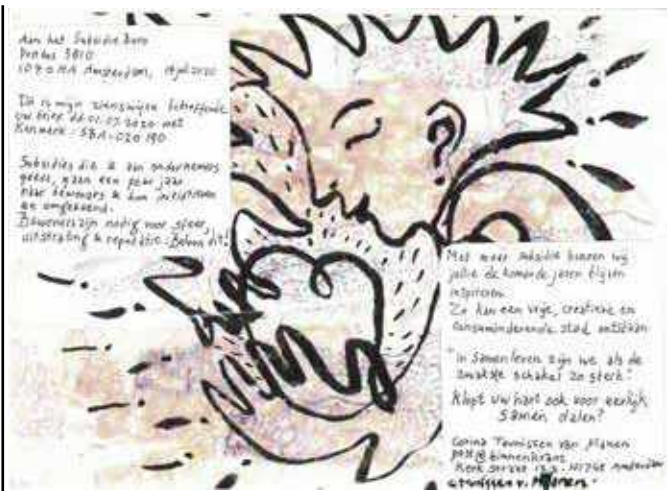 Aan het Subsidie Buro
Postbus 5810
Amsterdam, juli 2020
Dit is mijn zienswijze betreffende
uw brief dd 01.07.2020 met
Kenmerk: SBA-020 190
Subsidies die je aan ondernemers
geeft, gaan een paar jaar
naar bewoners & hun initiatieven
en omgekeerd.
Bewoners zijn nodig voor sfeer,
uitstraling & reputatie. Beloon dit!
Met meer subsidie kunnen wij
jullie de komende jaren blijven
inspireren.
Zo kan een vrije, creatieve en
consuminderende stad ontstaan
"In samenleven zijn we als de
zwakste schakel zo sterk!"
Klopt uw hart ook voor eerlijk
samen delen?
Corina Teunissen van Manen
binnenkrans
Kerkstraat